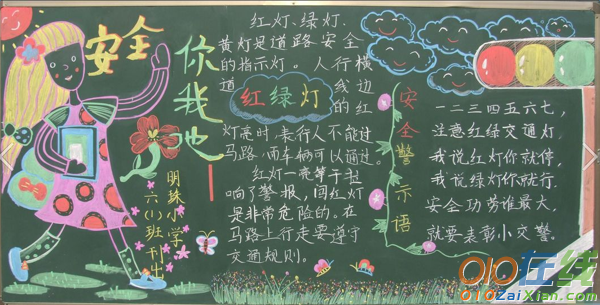 安全
你我他
明珠小学
六(1)班刊出
红灯、绿灯、
黄灯是道路安全
的指示灯。人行横
道线边
的红
红绿灯
灯亮时,表行人不能过
马路,而车辆可以通过。
红灯一亮等于
响了警报,闯红灯
是非常危险的。在
马路上行走要遵守
交通规则。
安全警示语
一二三四五六七,
注意红绿交通灯。
我说红灯你就停,
我说绿灯你就行。
安全功劳谁最大,
就要表彰小交警。
010在线
010ZaiXian.com